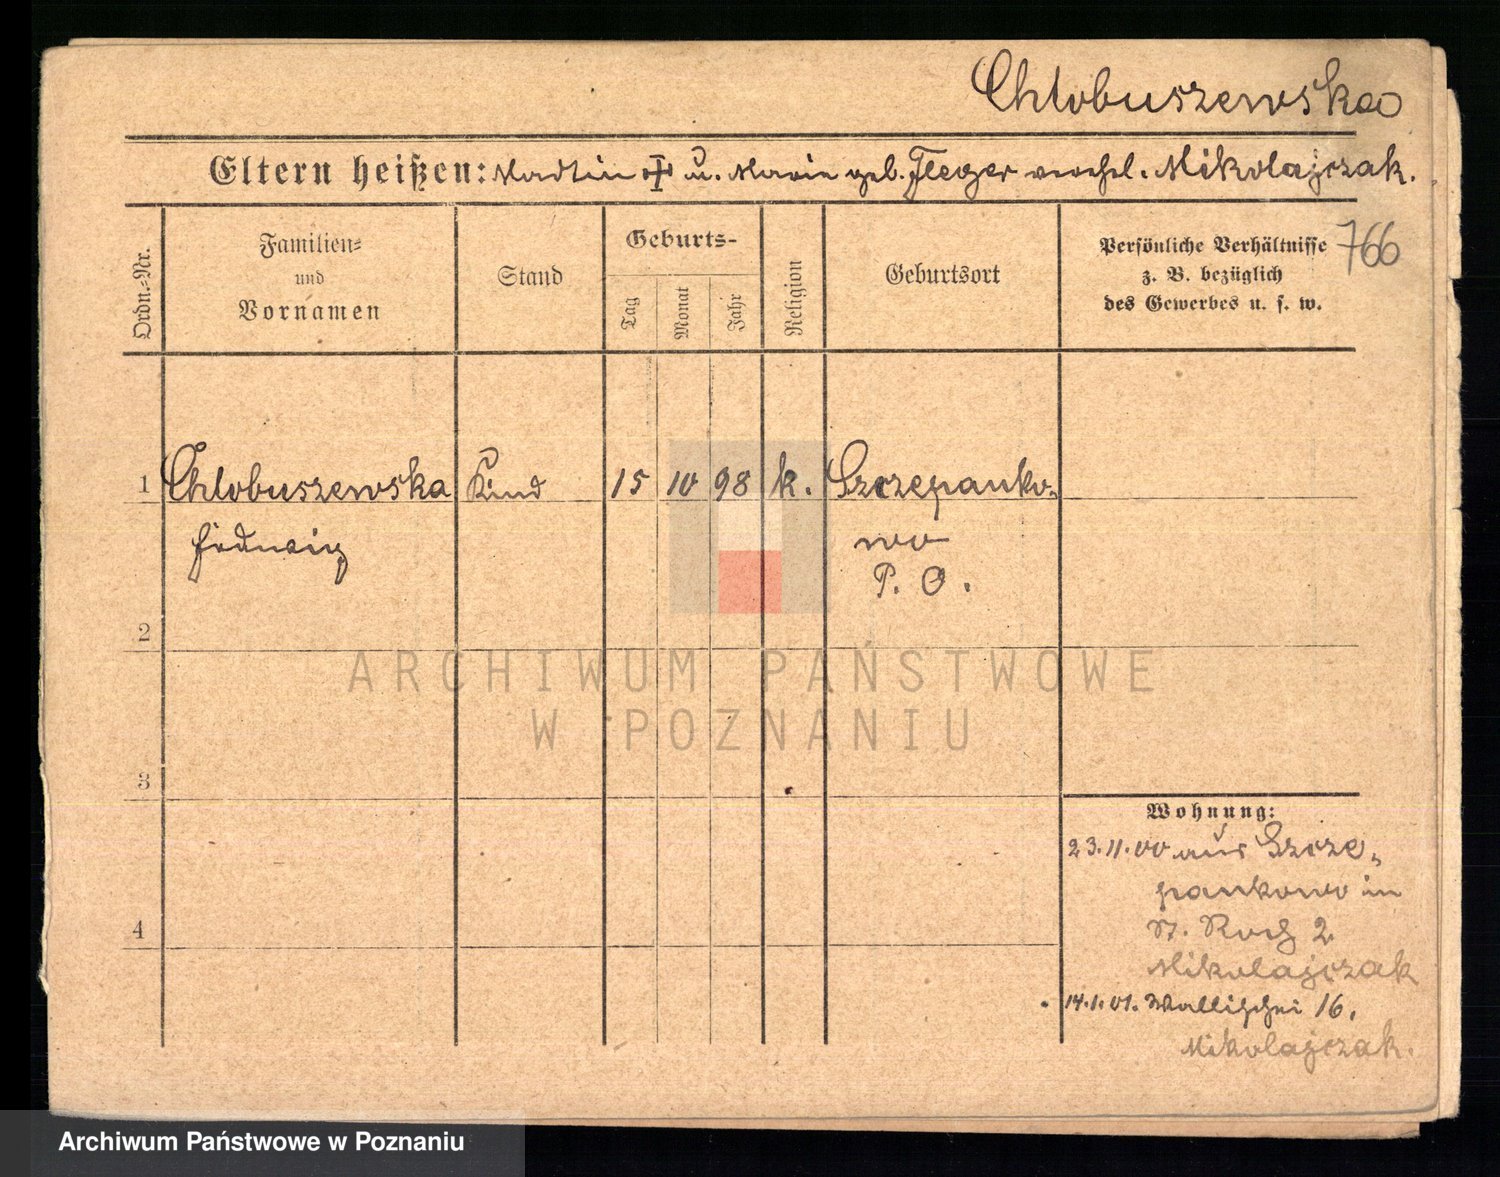 Chlobuszewska
Eltern heißen: Martin ✝ u. Marie geb. Fleger verehel. Mikolajczak.
766
Ordn.-Nr.
Familien- und Vornamen
Stand
Geburts-
Tag
Monat
Jahr
Religion
Geburtsort
Persönliche Verhältnisse
z. B. bezüglich
des Gewerbes u. s. w.
1 Chlobuszewska Kind 15 10 98 k. Szczepanko-
Hedwig wo
P. O.
2
ARCHIWUM PAŃSTWOWE
W POZNANIU
3
Wohnung:
23.11.00 aus Szcze-
pankowo in
St. Roch 2
4
Mikolajczak
14.1.01. Wallischei 16.
Mikolajczak.
Archiwum Państwowe w Poznaniu